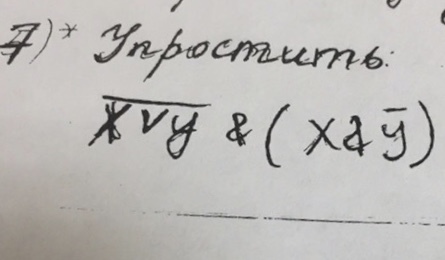 7)* Упростить:
X̅ ̅v̅ ̅y̅ & (X & ȳ)